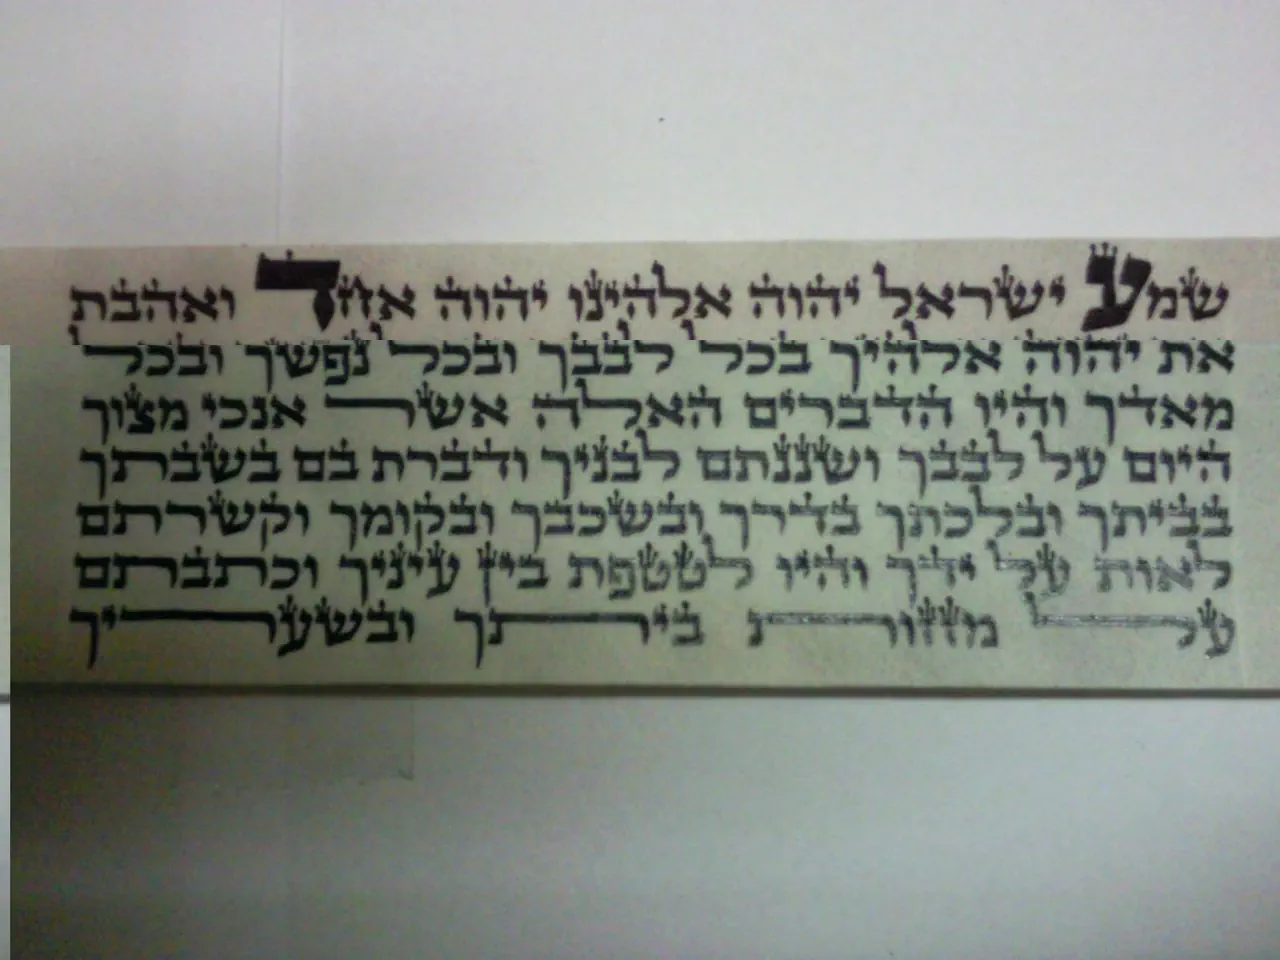 שמע ישראל יהוה אלהינו יהוה אחד ואהבת
את יהוה אלהיך בכל לבבך ובכל נפשך ובכל
מאדך והיו הדברים האלה אשר אנכי מצוך
היום על לבבך ושננתם לבניך ודברת בם בשבתך
בביתך ובלכתך בדרך ובשכבך ובקומך וקשרתם
לאות על ידך והיו לטטפת בין עיניך וכתבתם
על מזזות ביתך ובשעריך